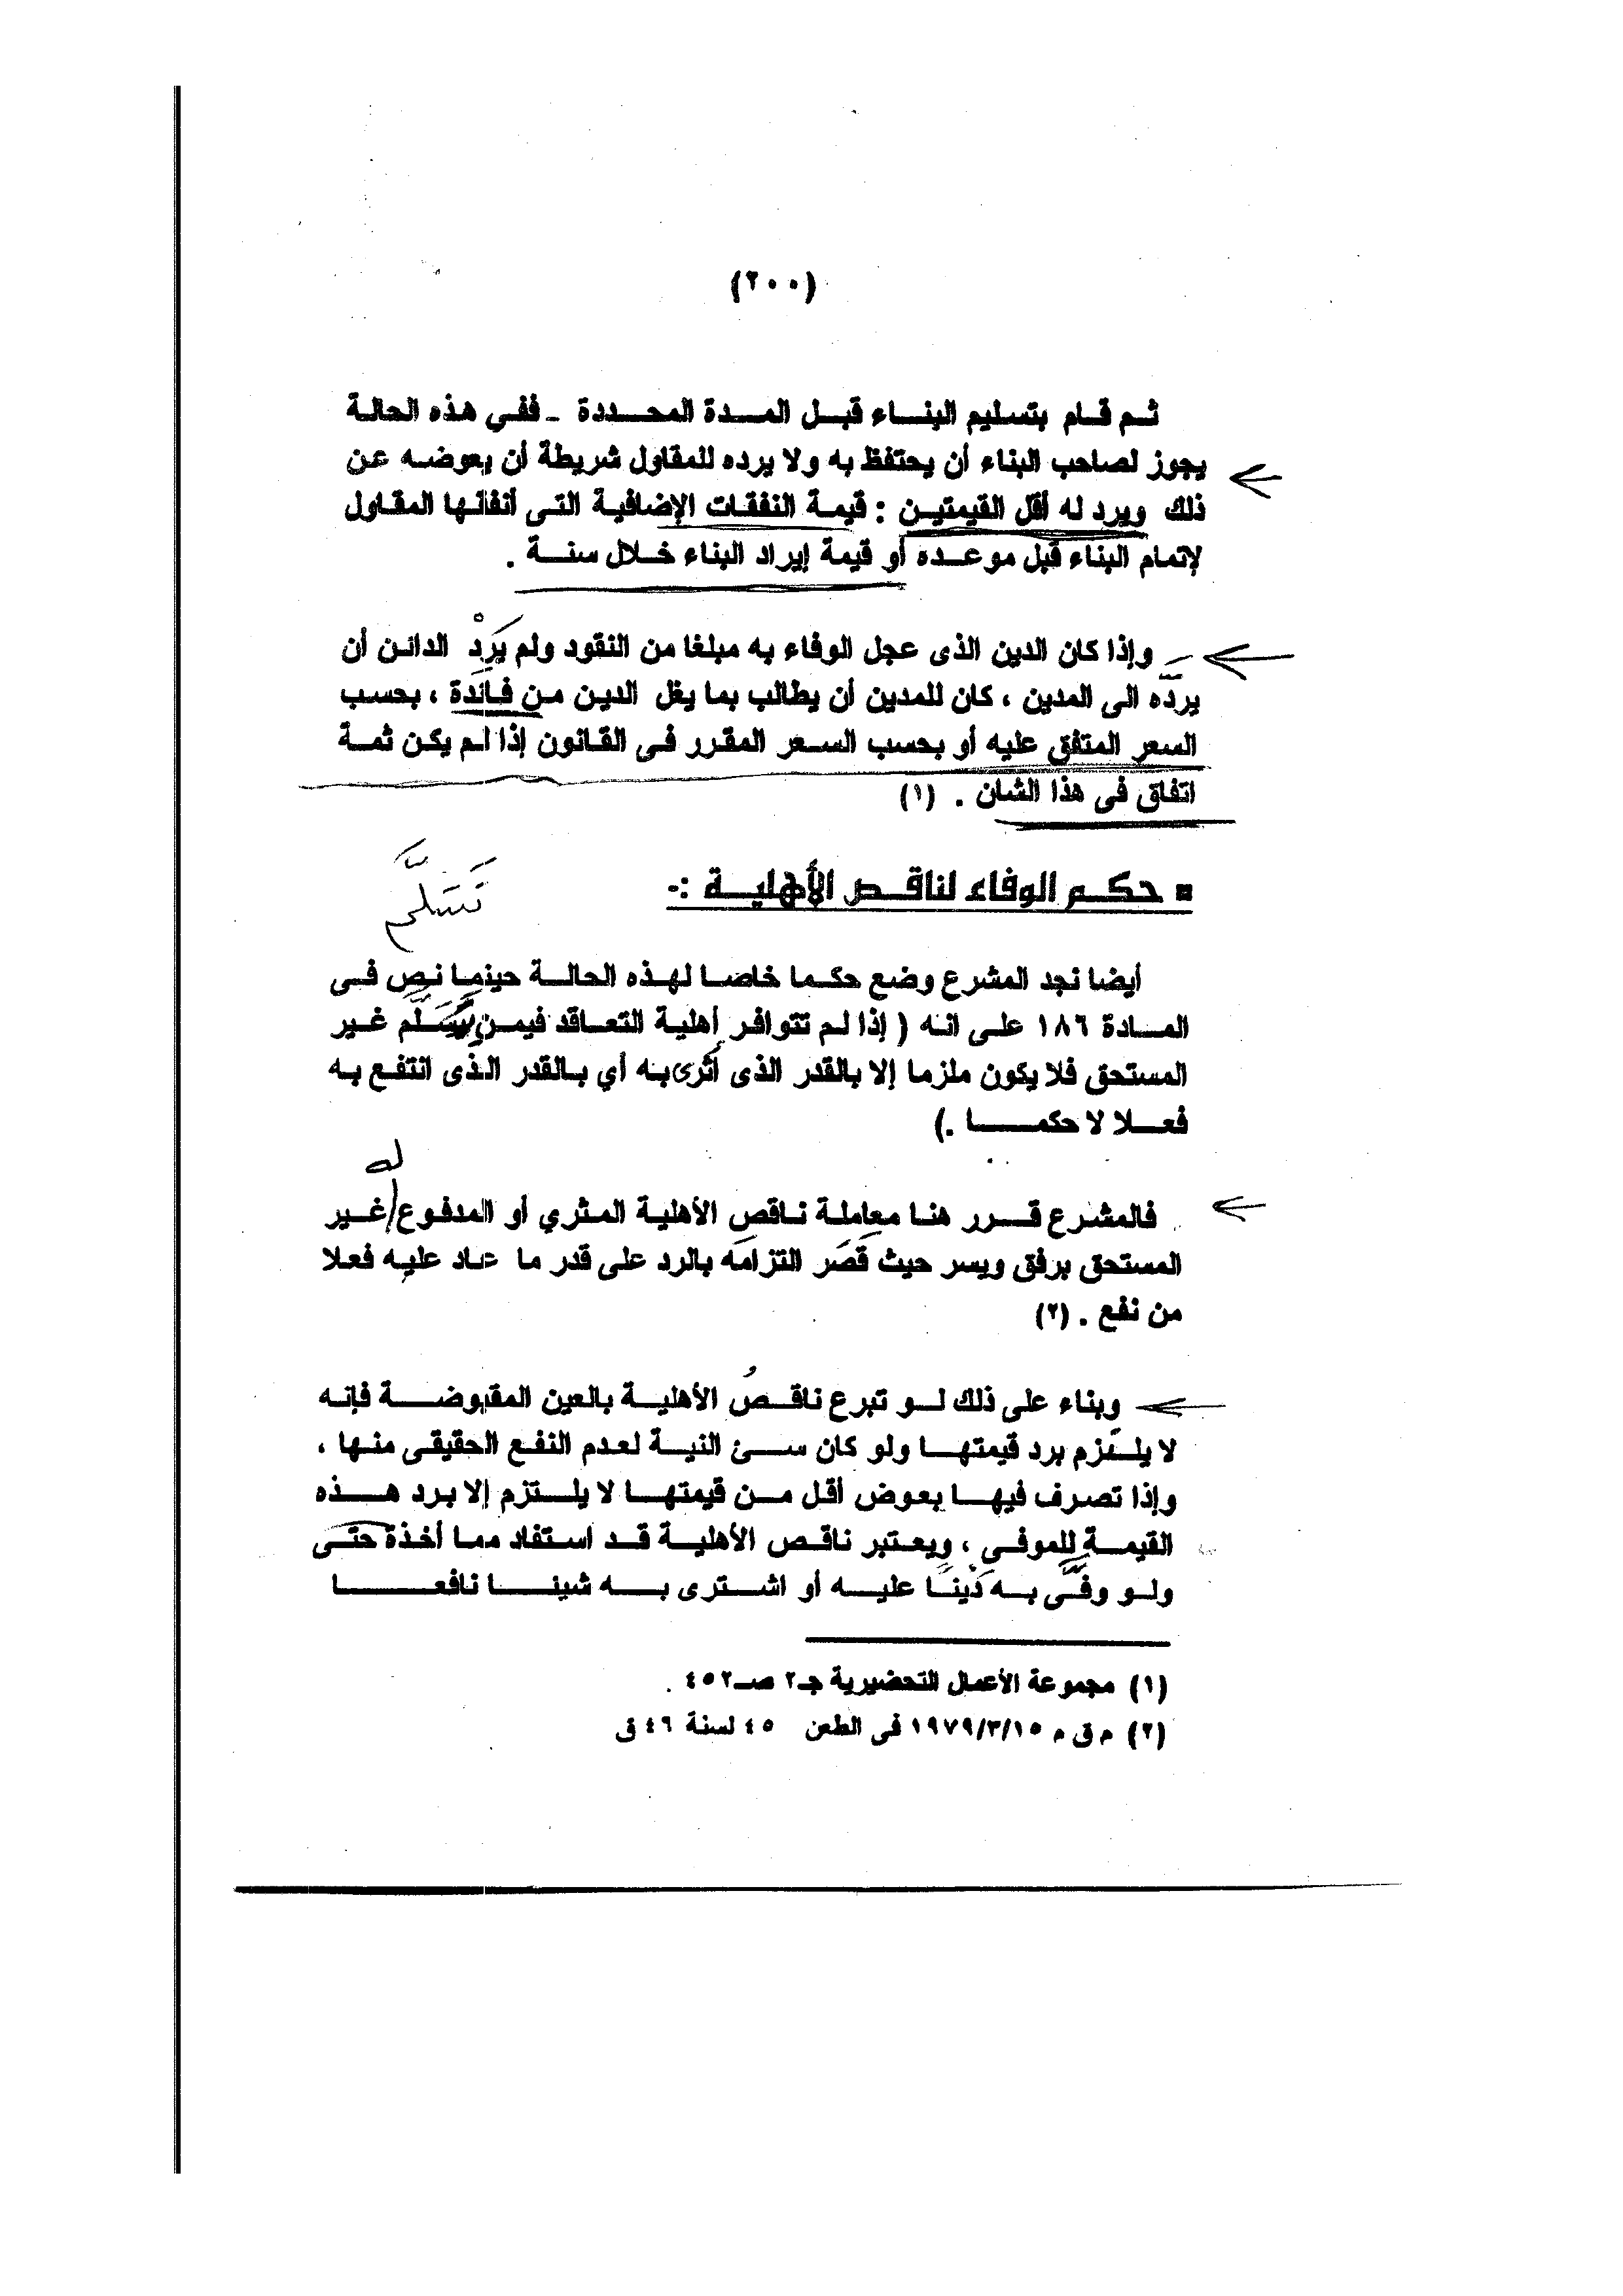 (٢٠٠)
ثم قام بتسليم البناء قبل المدة المحددة - ففي هذه الحالة
يجوز لصاحب البناء أن يحتفظ به ولا يرده للمقاول شريطة أن يعوضه عن
ذلك ويرد له أقل القيمتين : قيمة النفقات الإضافية التى أنفانها المقاول
لإتمام البناء قبل موعده أو قيمة إيراد البناء خلال سنة .
وإذا كان الدين الذى عجل الوفاء به مبلغا من النقود ولم يَرِدْ الدائن أن
يردّه الى المدين ، كان للمدين أن يطالب بما يغل الدين من فائدة ، بحسب
السعر المتفق عليه أو بحسب السعر المقرر فى القانون إذا لم يكن ثمة
اتفاق فى هذا الشان . (١)
تَسَلَّم
▪ حكم الوفاء لناقص الأهلية :-
أيضا نجد المشرع وضع حكما خاصا لهذه الحالة حينما نص فى
المادة ١٨٦ على انه ( إذا لم تتوافر أهلية التعاقد فيمن تَسَلَّم غير
المستحق فلا يكون ملزما إلا بالقدر الذى أثرى به أي بالقدر الذى انتفع به
فعلا لا حكما .)
له
فالمشرع قرر هنا معاملة ناقص الأهلية المثري أو المدفوع/غير
المستحق برفق ويسر حيث قَصَر التزامَه بالرد على قدر ما عاد عليه فعلا
من نفع . (٢)
وبناء على ذلك لو تبرع ناقصُ الأهلية بالعين المقبوضة فإنه
لا يلتزم برد قيمتها ولو كان سئ النية لعدم النفع الحقيقى منها ،
وإذا تصرف فيها بعوض أقل من قيمتها لا يلتزم إلا برد هذه
القيمة للموفى ، ويعتبر ناقص الأهلية قد استفاد مما أخذة حتى
ولو وفَّى به دَينًا عليه أو اشترى به شينا نافعا
(١) مجموعة الأعمال التحضيرية جـ٢ صـ٤٥٢ .
(٢) م ق م ١٩٧٩/٣/١٥ فى الطعن ٤٥ لسنة ٤٦ ق